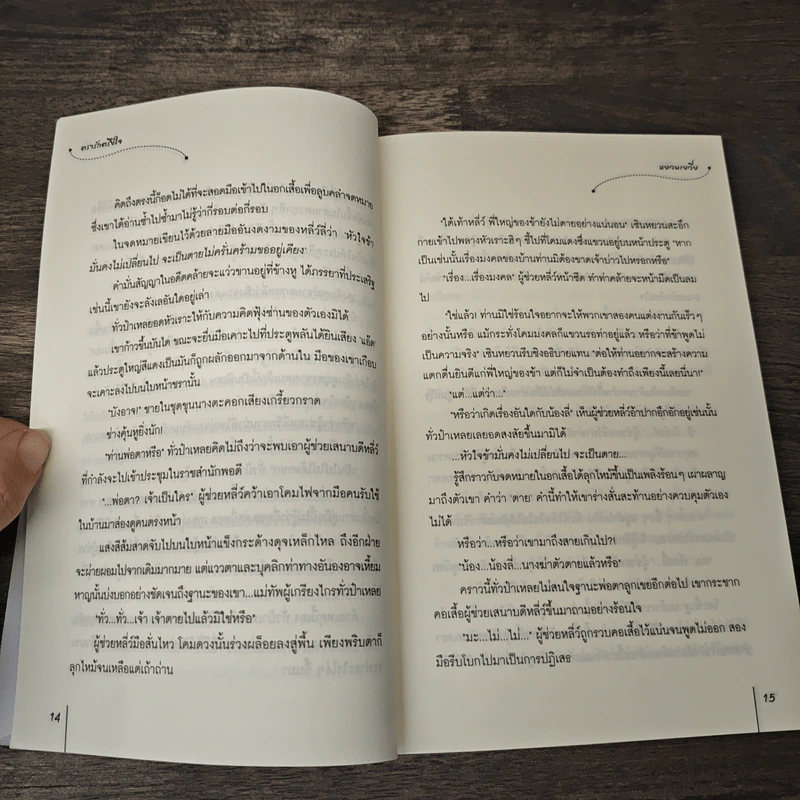 ตรารักตรึงใจ
คิดถึงตรงนี้ก็อดไม่ได้ที่จะสอดมือเข้าไปในอกเสื้อเพื่อลูบคลำจดหมาย
ซึ่งเขาได้อ่านซ้ำไปซ้ำมาไม่รู้ว่ากี่รอบต่อกี่รอบ
ในจดหมายเขียนไว้ด้วยลายมืออันงดงามของหลิ่วลี่ว่า 'หัวใจข้า
มั่นคงไม่เปลี่ยนไป จะเป็นตายไม่ครั่นคร้ามขออยู่เคียง'
คำมั่นสัญญาในอดีตคล้ายจะแว่วขานอยู่ที่ข้างหู ได้ภรรยาที่ประเสริฐ
เช่นนี้เขายังจะลังเลอันใดอยู่เล่า
ทั่วป๋าเหลยอดหัวเราะให้กับความคิดฟุ้งซ่านของตัวเองมิได้
เขาก้าวขึ้นบันได ขณะจะยื่นมือเคาะไปที่ประตูพลันได้ยินเสียง 'แอ๊ด'
แล้วประตูใหญ่สีแดงเป็นมันก็ถูกผลักออกมาจากด้านใน มือของเขาเกือบ
จะเคาะลงไปบนใบหน้าชรานั้น
"บังอาจ!" ชายในชุดขุนนางตะคอกเสียงเกรี้ยวกราด
ช่างคุ้นหูยิ่งนัก!
"ท่านพ่อตาหรือ" ทั่วป๋าเหลยคิดไม่ถึงว่าจะพบเอาผู้ช่วยเสนาบดีหลิ่ว
ที่กำลังจะไปเข้าประชุมในราชสำนักพอดี
"...พ่อตา? เจ้าเป็นใคร" ผู้ช่วยหลิ่วคว้าเอาโคมไฟจากมือคนรับใช้
ในบ้านมาส่องดูคนตรงหน้า
แสงสีส้มสาดจับไปบนใบหน้าแข็งกระด้างดุจเหล็กไหล ถึงอีกฝ่าย
จะผ่ายผอมไปจากเดิมมากมาย แต่แววตาและบุคลิกท่าทางอันองอาจเหี้ยม
หาญนั้นบ่งบอกอย่างชัดเจนถึงฐานะของเขา...แม่ทัพผู้เกรียงไกรทั่วป๋าเหลย
"ทั่ว...ทั่ว...เจ้า เจ้าตายไปแล้วมิใช่หรือ"
ผู้ช่วยหลิ่วมือสั่นไหว โคมดวงนั้นร่วงผล็อยลงสู่พื้น เพียงพริบตาก็
ลุกไหม้จนเหลือแต่เถ้าถ่าน
14
หยวนเยวี่ย
"ใต้เท้าหลิ่ว พี่ใหญ่ของข้ายังไม่ตายอย่างแน่นอน" เซินหยวนสะอึก
กายเข้าไปพลางหัวเราะฮิๆ ชี้ไปที่โคมแดงซึ่งแขวนอยู่บนหน้าประตู "หาก
เป็นเช่นนั้นเรื่องมงคลของบ้านท่านมิต้องขาดเจ้าบ่าวไปหรอกหรือ"
"เรื่อง...เรื่องมงคล" ผู้ช่วยหลิ่วหน้าซีด ทำท่าคล้ายจะหน้ามืดเป็นลม
ไป
"ใช่แล้ว! ท่านมิใช่ร้อนใจอยากจะให้พวกเขาสองคนแต่งงานกันเร็วๆ
อย่างนั้นหรือ แม้กระทั่งโคมมงคลก็แขวนรอท่าอยู่แล้ว หรือว่าที่ข้าพูดไม่
เป็นความจริง" เซินหยวนรีบชิงอธิบายแทน "ต่อให้ท่านอยากจะสร้างความ
แตกตื่นยินดีแก่พี่ใหญ่ของข้า แต่ก็ไม่จำเป็นต้องทำถึงเพียงนี้เลยนี่นา!"
"แต่...แต่ว่า..."
"หรือว่าเกิดเรื่องอันใดกับน้องลี่" เห็นผู้ช่วยหลิ่วอ้าปากอึกอักอยู่เช่นนั้น
ทั่วป๋าเหลยเลยอดสงสัยขึ้นมามิได้
...หัวใจข้ามั่นคงไม่เปลี่ยนไป จะเป็นตาย...
รู้สึกราวกับจดหมายในอกเสื้อได้ลุกไหม้ขึ้นเป็นเพลิงร้อนๆ เผาผลาญ
มาถึงตัวเขา คำว่า 'ตาย' คำนี้ทำให้เขาร่างสั่นสะท้านอย่างควบคุมตัวเอง
ไม่ได้
หรือว่า...หรือว่าเขามาถึงสายเกินไป?!
"น้อง...น้องลี่...นางฆ่าตัวตายแล้วหรือ"
คราวนี้ทั่วป๋าเหลยไม่สนใจฐานะพ่อตาลูกเขยอีกต่อไป เขากระชาก
คอเสื้อผู้ช่วยเสนาบดีหลิ่วขึ้นมาถามอย่างร้อนใจ
"มะ...ไม่...ไม่..." ผู้ช่วยหลิ่วถูกรวบคอเสื้อไว้แน่นจนพูดไม่ออก สอง
มือรีบโบกไปมาเป็นการปฏิเสธ
15